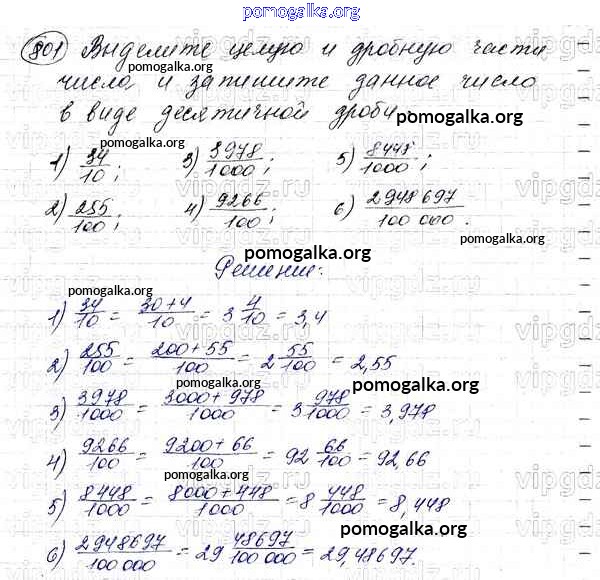 pomogalka.org
801 Выделите целую и дробную части
числа и запишите данное число
pomogalka.org
в виде десятичной дроби.
pomogalka.org
1) 34/10; 3) 3978/1000; 5) 8448/1000;
pomogalka.org pomogalka.org
2) 255/100; 4) 9266/100; 6) 2948697/100 000.
vipgdz.ru
pomogalka.org pomogalka.org
Решение:
pomogalka.org
1) 34/10 = 30+4/10 = 3 4/10 = 3,4
pomogalka.org
2) 255/100 = 200+55/100 = 2 55/100 = 2,55
pomogalka.org pomogalka.org
3) 3978/1000 = 3000+978/1000 = 3 978/1000 = 3,978
4) 9266/100 = 9200+66/100 = 92 66/100 = 92,66
pomogalka.org
5) 8448/1000 = 8000+448/1000 = 8 448/1000 = 8,448
pomogalka.org
6) 2948697/100 000 = 29 48697/100 000 = 29,48697.